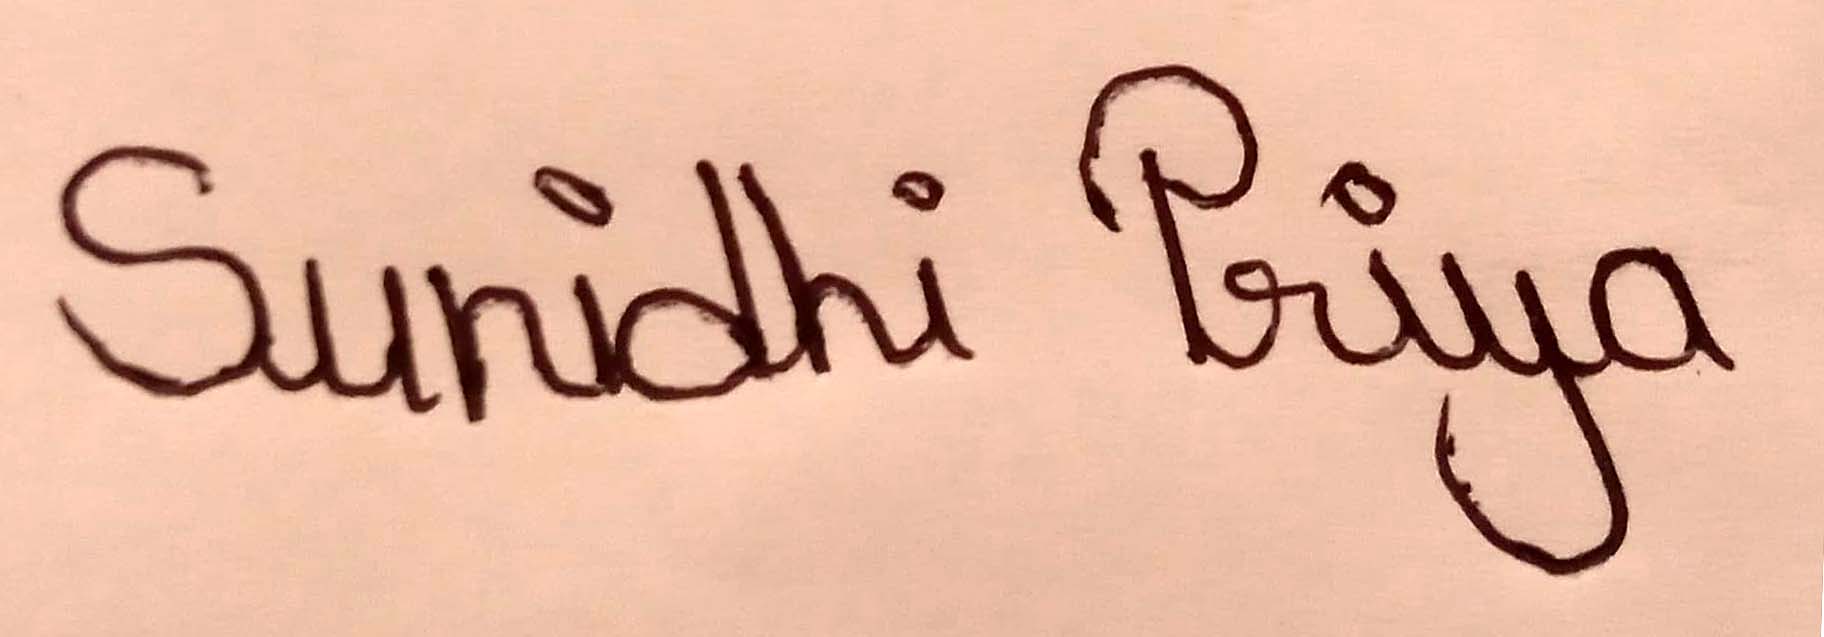 Sunidhi Priya